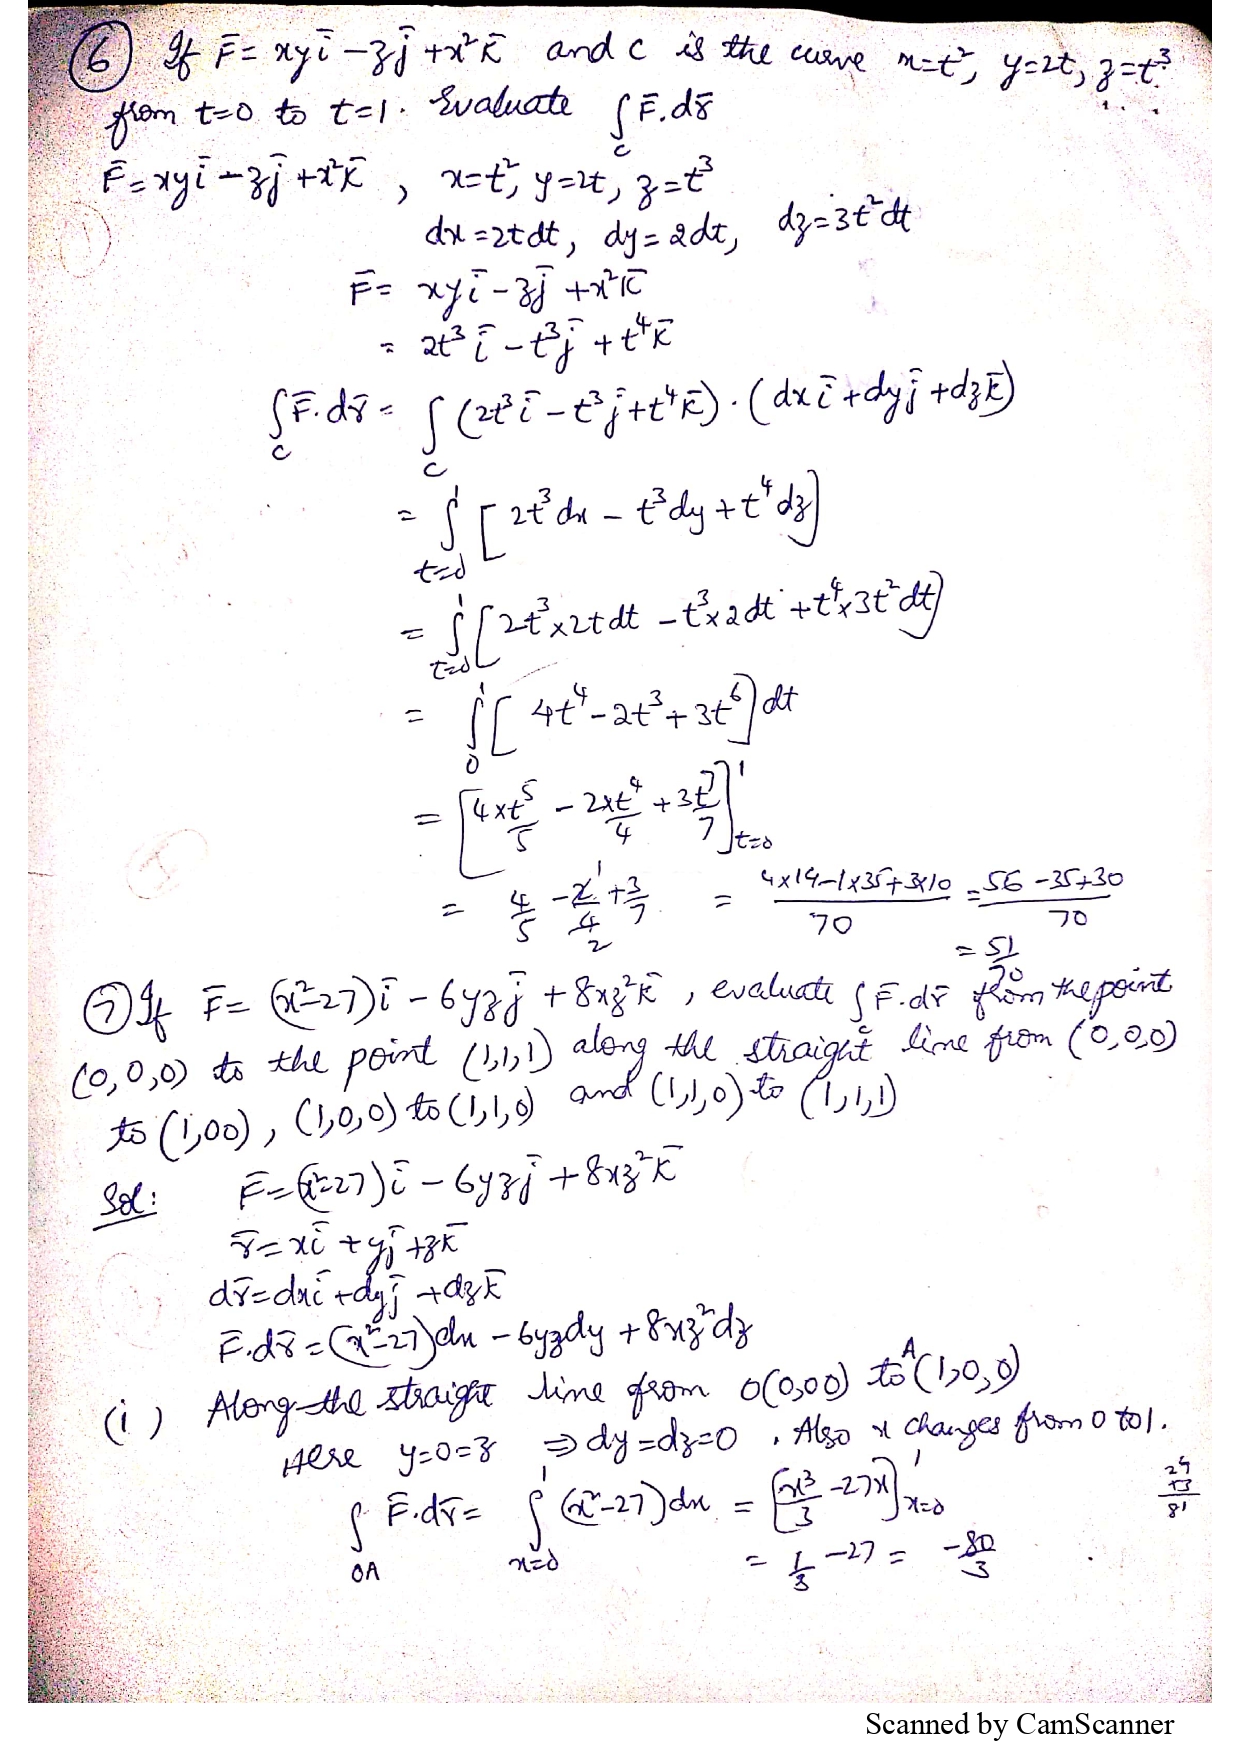 ⑥ If F̄ = xyī - zj̄ + x²k̄ and c is the curve x=t², y=2t, z=t³.
from t=0 to t=1. Evaluate ∫_c F̄.dr̄
F̄ = xyī - zj̄ + x²k̄ , x=t², y=2t, z=t³
dx = 2tdt, dy = 2dt, dz = 3t²dt
F̄ = xyī - zj̄ + x²k̄
= 2t³ī - t³j̄ + t⁴k̄
∫_c F̄.dr̄ = ∫_c (2t³ī - t³j̄ + t⁴k̄) . (dxī + dyj̄ + dzk̄)
= ∫_{t=0}^1 [2t³dx - t³dy + t⁴dz]
= ∫_{t=0}^1 [2t³×2tdt - t³×2dt + t⁴×3t²dt]
= ∫_0^1 [4t⁴ - 2t³ + 3t⁶]dt
= [4×t⁵/5 - 2×t⁴/4 + 3t⁷/7]_{t=0}^1
= 4/5 - 2/4 1/2 + 3/7 = (4×14-1×35+3×10)/70 = (56-35+30)/70
= 51/70
⑦ If F̄ = (x²-27)ī - 6yzj̄ + 8xz²k̄ , evaluate ∫_c F̄.dr̄ from the point
(0,0,0) to the point (1,1,1) along the straight line from (0,0,0)
to (1,00), (1,0,0) to (1,1,0) and (1,1,0) to (1,1,1)
Sol: F̄ = (x²-27)ī - 6yzj̄ + 8xz²k̄
r̄ = xī + yj̄ + zk̄
dr̄ = dxī + dyj̄ + dzk̄
F̄.dr̄ = (x²-27)dx - 6yzdy + 8xz²dz
(i) Along the straight line from O(0,00) to A(1,0,0)
Here y=0=z ⇒ dy=dz=0 . Also x changes from 0 to 1.
∫_{OA} F̄.dr̄ = ∫_{x=0}^1 (x²-27)dx = [x³/3 - 27x]_{x=0}^1
= 1/3 - 27 = -80/3
Scanned by CamScanner